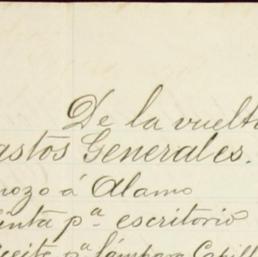 De la vuelta
astos Generales.
mozo á Alamo
inta p.ª escritorio
aceite p.ª lámpara Capill